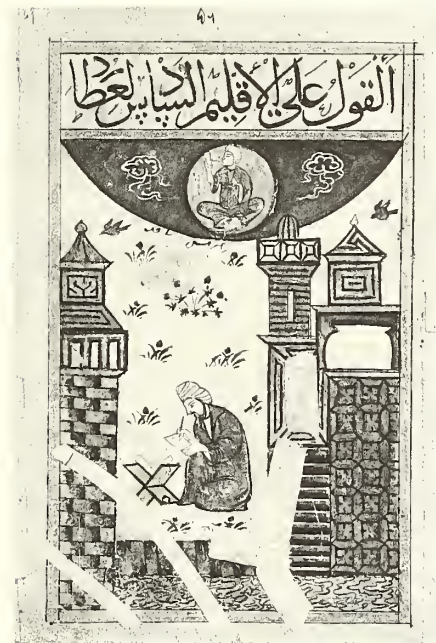 القول علي الاقليم السادس لعطارد